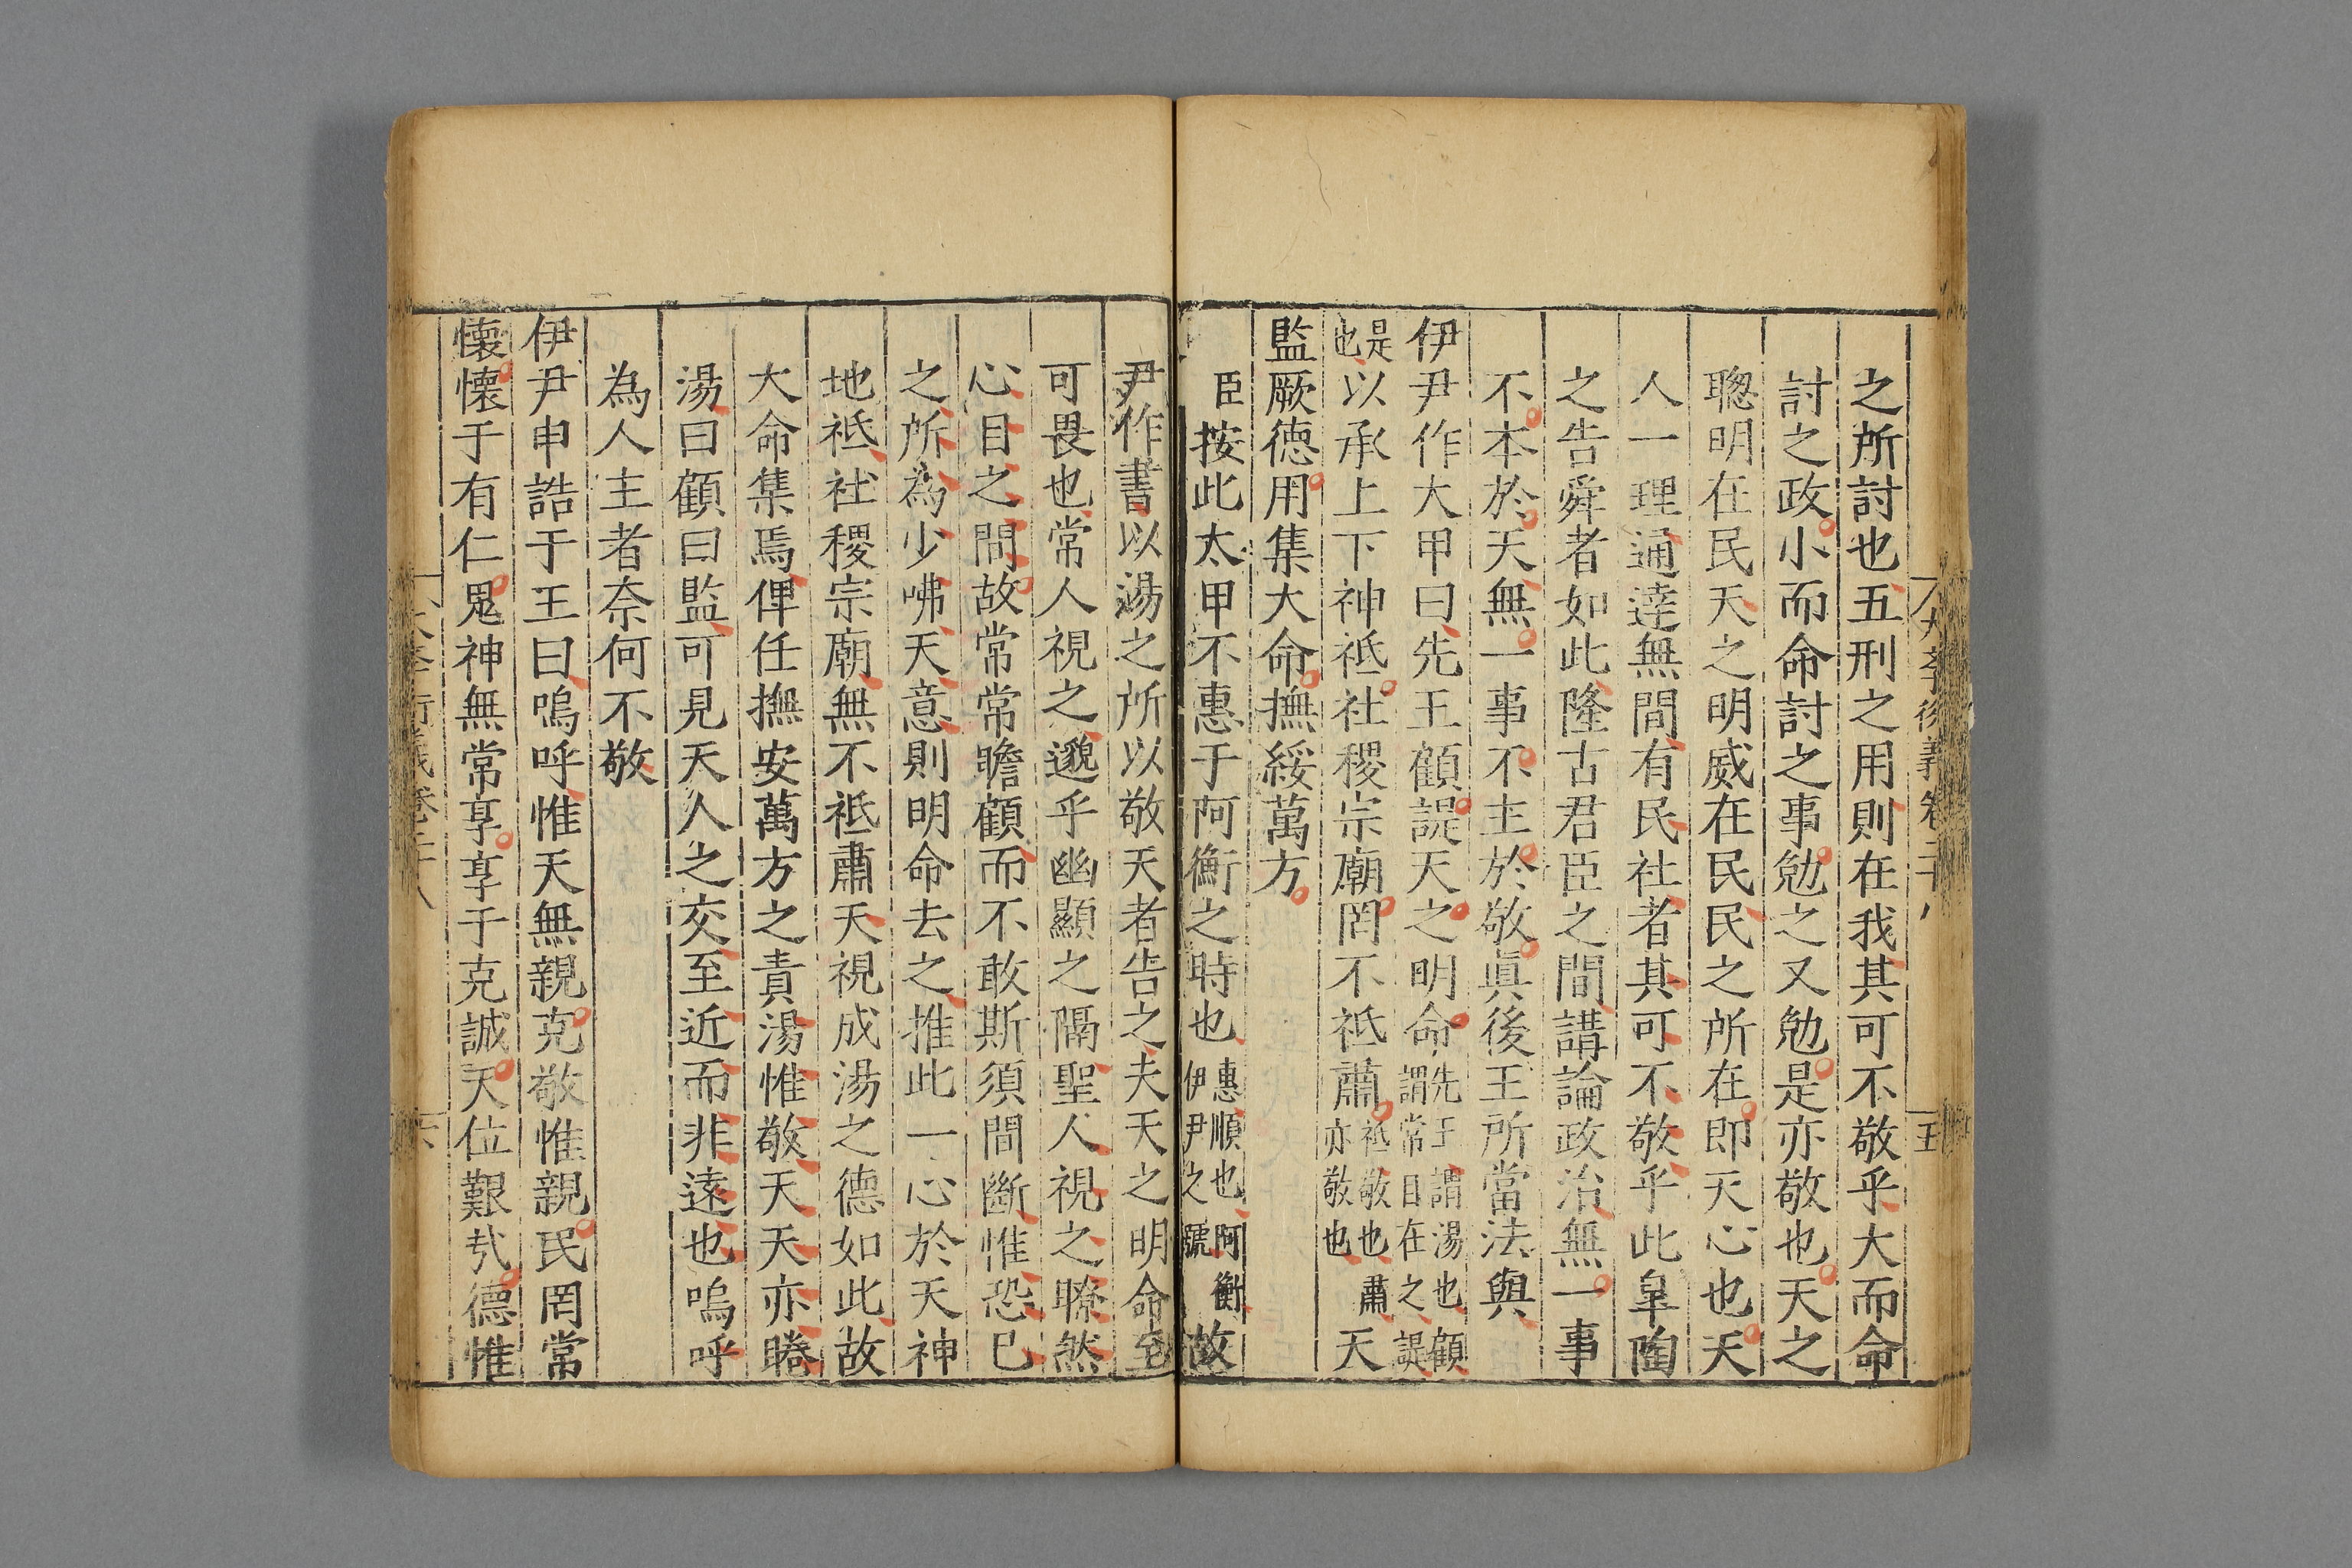 大學衍義卷二十八
五
之所討也五刑之用則在我其可不敬乎大而命
討之政小而命討之事勉之又勉是亦敬也天之
聰明在民天之明威在民民之所在即天心也天
人一理通達無間有民社者其可不敬乎此皐陶
之告舜者如此隆古君臣之間講論政治無一事
不本於天無一事不主於敬眞後王所當法與
伊尹作大甲曰先王顧諟天之明命先王謂湯也顧謂常目在之諟
是也以承上下神祗社稷宗廟罔不祗肅祗敬也肅亦敬也天
監厥德用集大命撫綏萬方
臣按此太甲不惠于阿衡之時也惠順也阿衡伊尹之號故
尹作書以湯之所以敬天者告之夫天之明命至
可畏也常人視之邈乎幽顯之隔聖人視之瞭然
心目之間故常常瞻顧而不敢斯須間斷惟恐已
之所為少咈天意則明命去之推此一心於天神
地祗社稷宗廟無不祗肅天視成湯之德如此故
大命集焉俾任撫安萬方之責湯惟敬天天亦睠
湯曰顧曰監可見天人之交至近而非遠也嗚呼
為人主者奈何不敬
伊尹申誥于王曰嗚呼惟天無親克敬惟親民罔常
懷懷于有仁鬼神無常享享于克誠天位艱㢤德惟
大學衍義卷二十八
六